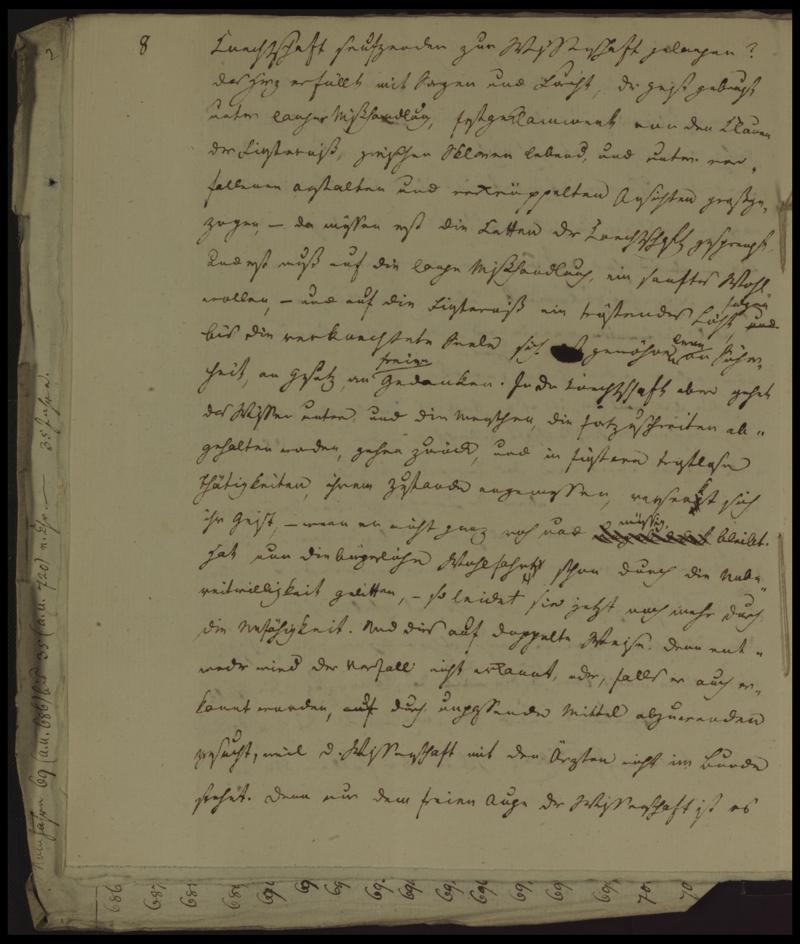 8
Knechtschaft seufzenden zur Wissenschaft gelangen?
das Herz erfüllt mit Sorgen und Furcht, der Geist gebeugt
unter langer Mißhandlung, festgeklammert von den Klauen
der Finsterniß, zwischen Sklaven lebend, und unter ver-
fallenen Anstalten und verkrüppelten Ansichten großge-
zogen, — da müssen erst die Ketten der Knechtschaft gesprengt
und erst muß auf die lange Mißhandlung, ein sanftes Wohl
wollen, — und auf die Finsterniß ein tröstendes Licht folgen und
bis die verknechtete Seele sich gewöhne an Frei-
heit, an Gesetz an freien Gedanken. In der Knechtschaft aber gehet
das Wissen unter, und die Menschen, die fortzuschreiten ab-
gehalten werden, gehen zurück, und in finstere trostlose
Thätigkeiten, ihrem Zustande angemessen, versenkt sich
ihr Geist, — wenn er nicht ganz roh und müssig bleibt.
Hat nun die bürgerliche Wohlfahrt schon durch die Unbe-
reitwilligkeit gelitten, — so leidet sie jetzt noch mehr durch
die Unfähigkeit. Und dies auf doppelte Weise. denn ent-
weder wird der Verfall nicht erkannt, oder, falls er auch er-
kannt worden, durch unpassende Mittel abzuwenden
gesucht, weil d. Wissenschaft mit den Ärzten nicht im Bunde
stehet. Denn nur dem freien Auge der Wissenschaft ist es
686
687
69
70